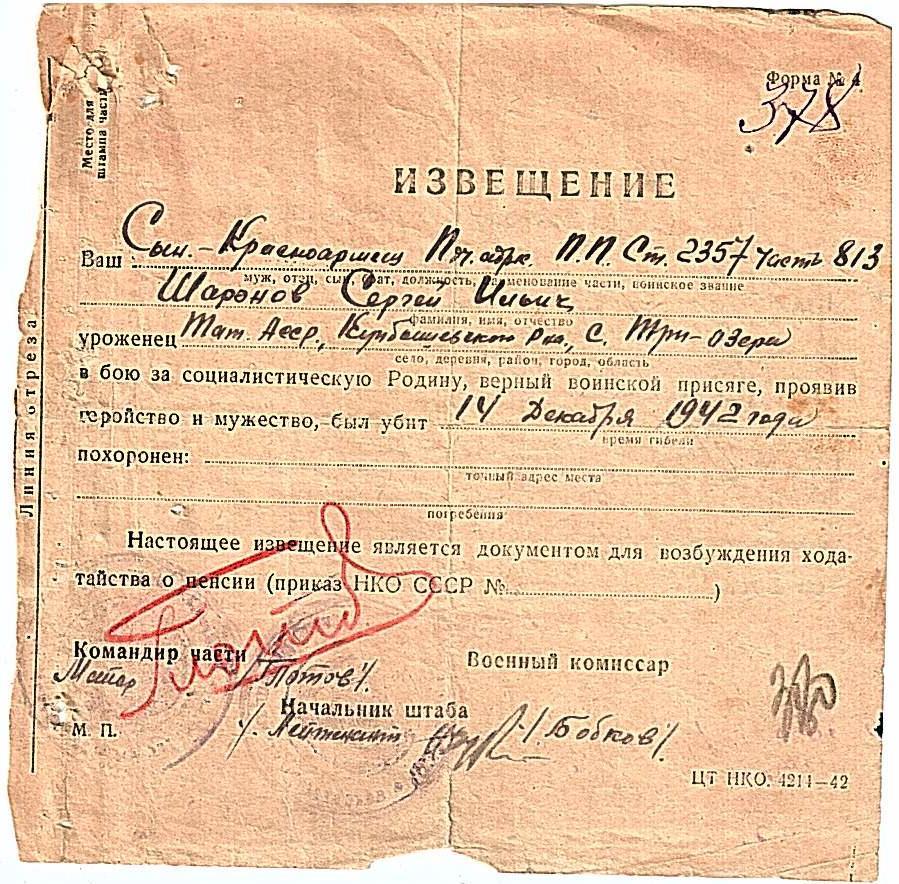 Форма № 4
378
Место для
штампа части
ИЗВЕЩЕНИЕ
Ваш Сын.-Красноармеец П.П. Ст. 2357 часть 813
муж, отец, сын, брат, должность, наименование части, воинское звание
Шаронов Сергей Ильич
фамилия, имя, отчество
уроженец Тат. Асср., Куйбышевского р-на, с. Три-озера
село, деревня, район, город, область
в бою за социалистическую Родину, верный воинской присяге, проявив
геройство и мужество, был убит 14 Декабря 1942 года
время гибели
похоронен:
точный адрес места
погребения
Настоящее извещение является документом для возбуждения хода-
тайства о пенсии (приказ НКО СССР № )
Линия отреза
Командир части
Майор /Потов/.
Военный комиссар
Начальник штаба
М. П.
/. Лейтенант /Бобков/
ЦТ НКО. 4214—42